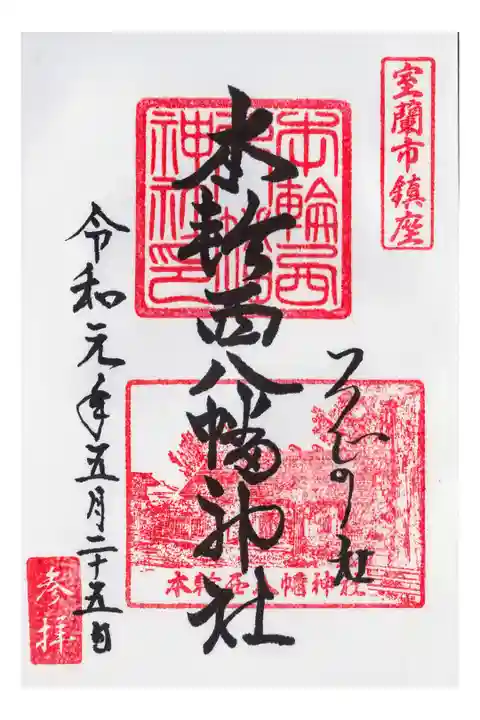 室蘭市鎮座
つつじの社
本輪西八幡神社
本輪西八幡神社印
本輪西八幡神社
令和元年五月二十五日
参拝